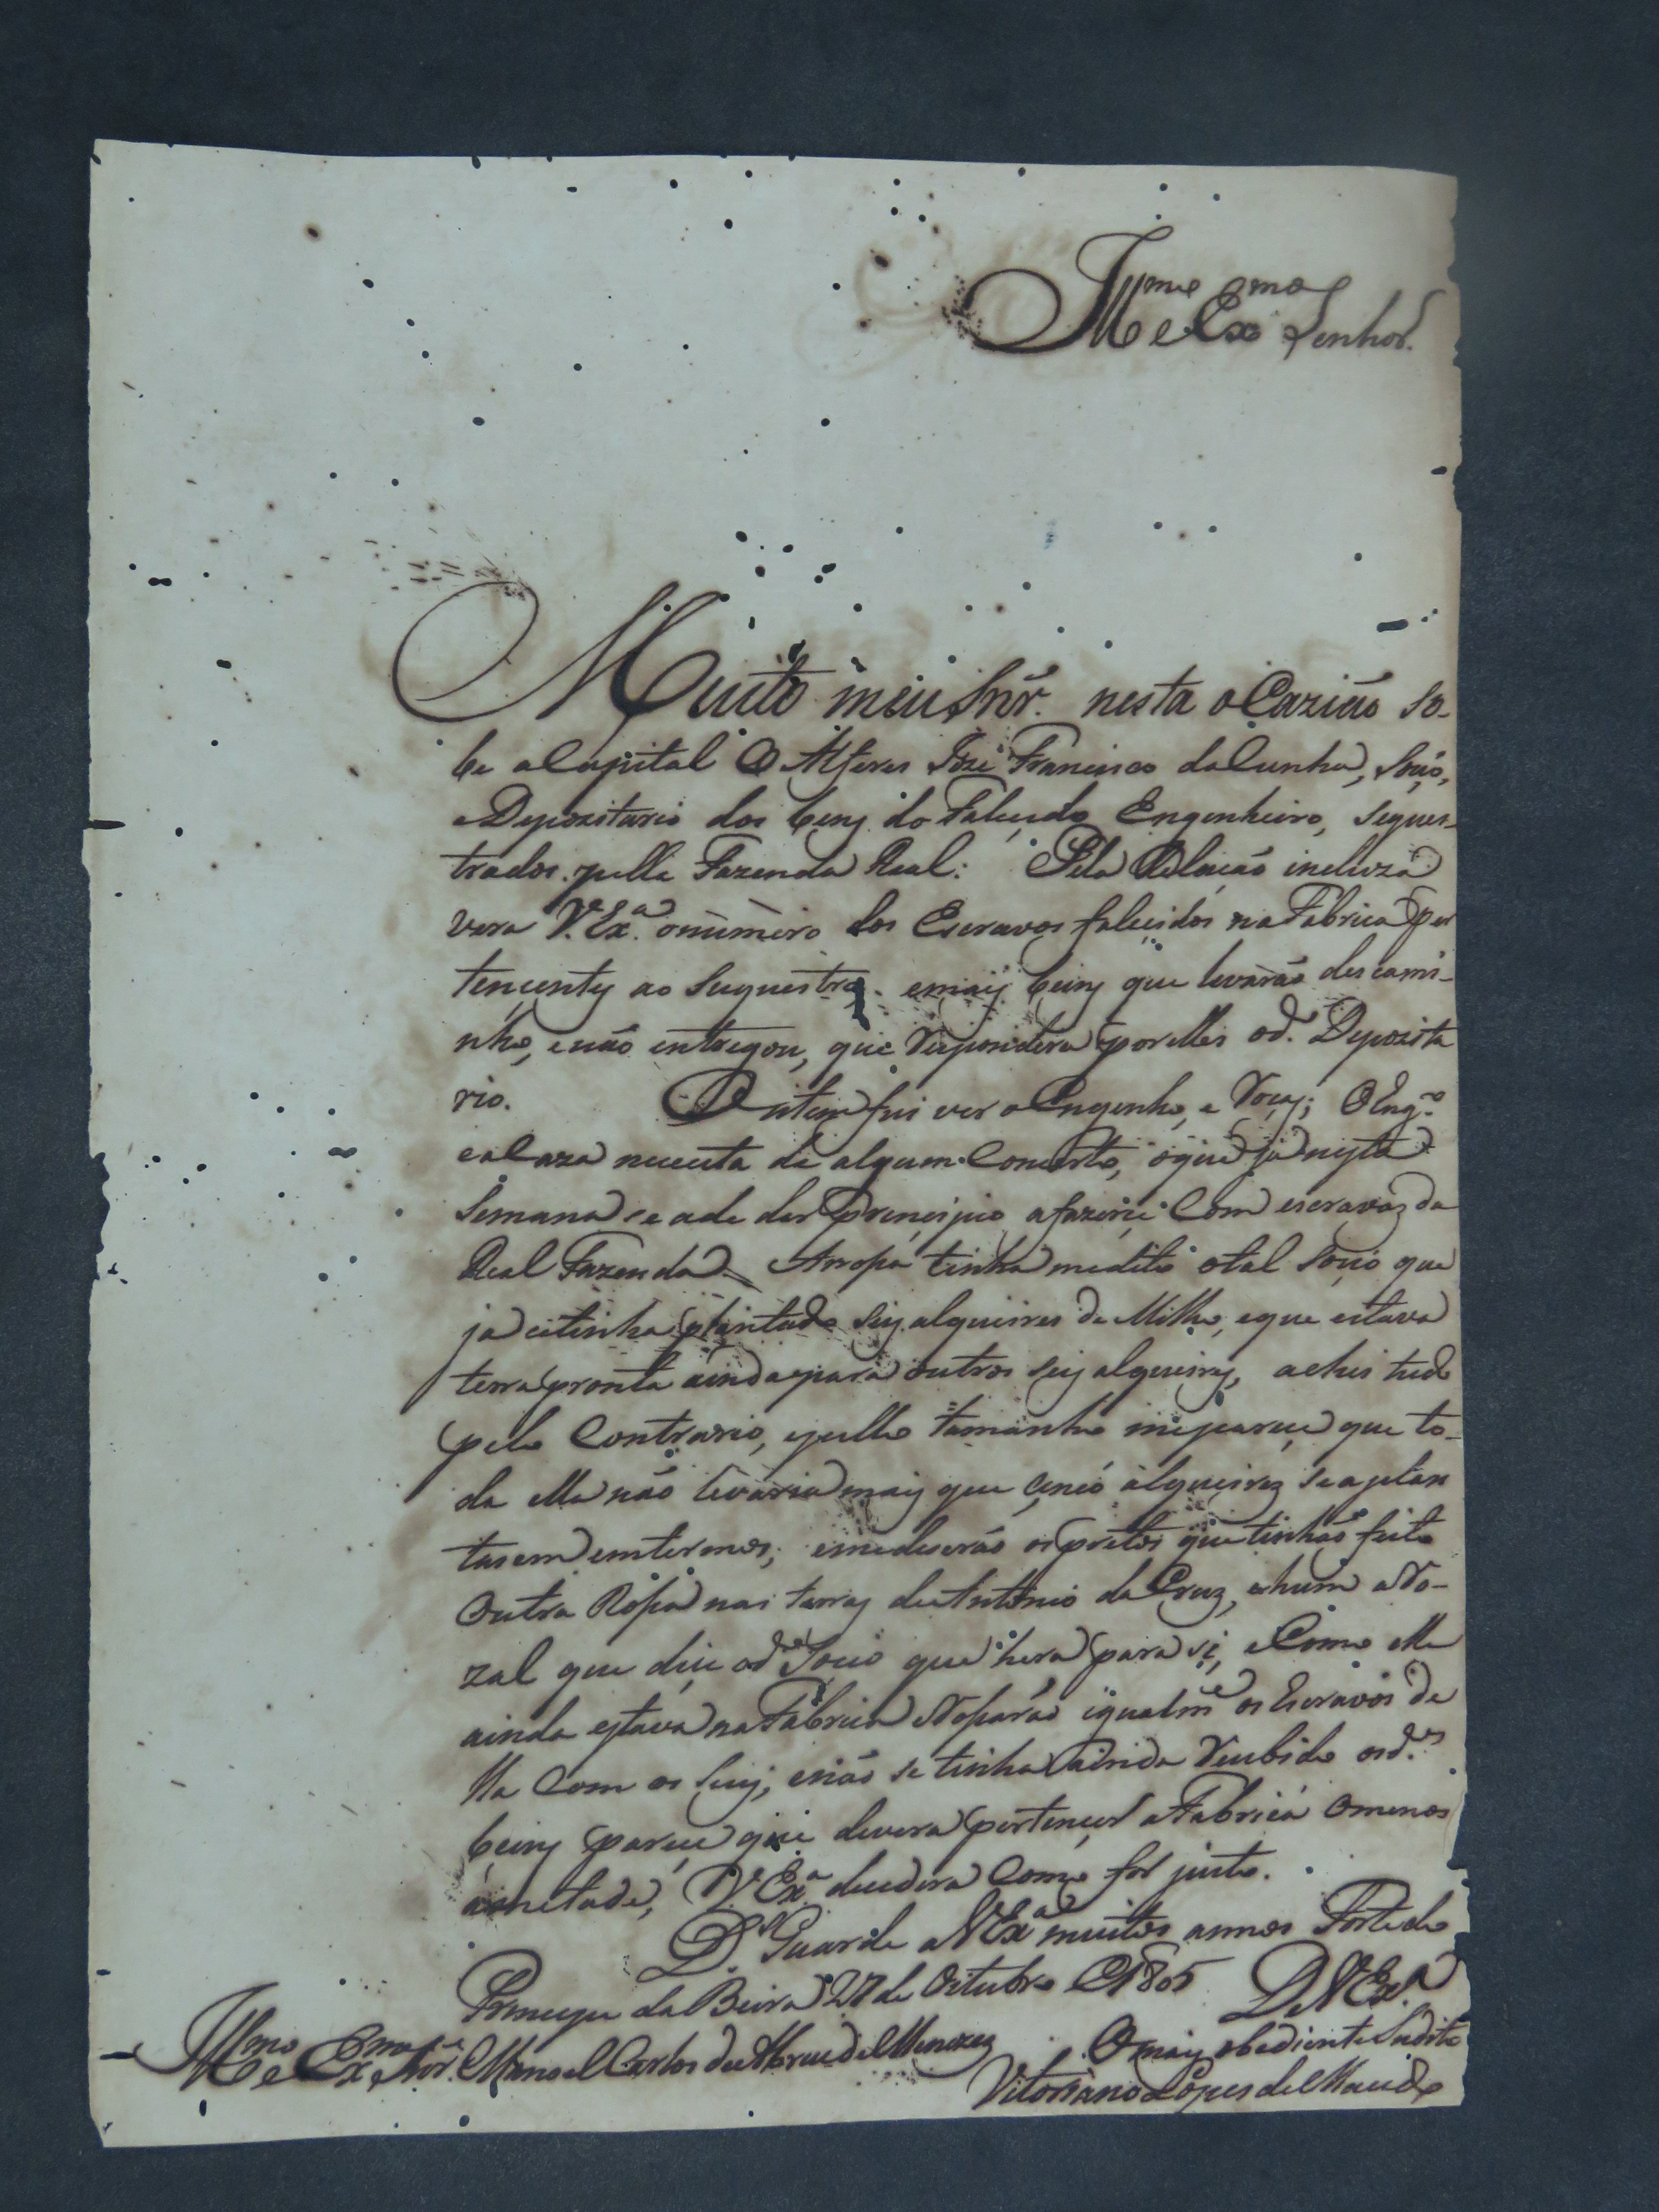 Ill.mo e Ex.mo Senhor.
Muito meu Snr. nesta oCazião so-
be aCapital O Alferes Joze Francisco daCunha, Socio,
e Depozitario dos bens do Falecido Engenheiro, seques-
trados pella Fazenda Real: Pela Relacão incluza
vera V. Ex.a onumero dos Escravos falecidos na Fabrica per
tencentes ao Suquestro. emais beins que levarão descami-
nho, enão entregou, que Respondera por elles od. Depozita
rio. Ontem fui ver oEngenho, e Roças; O Eng.o
eaCaza necesita de algum Concerto, oque já nesta
Semana se ade dar principio afazerce Com escravos da
Real Fazenda. ARossa tinha medito otal Socio que
ja citinha plantado seis alqueires de Milho, eque estava
terra pronta ainda para outros seis alqueires, achei tudo
pelo Contrario, epello tamanho meparece que to-
da ella não levaria mais que cinco alqueires seaplan
tasem emtermos; emediserão ospretos que tinhão feito
Outra Rossa nas terras de Antonio da Cruz, ehum aRo-
zal que dice od.o Socio que hera para si, eComo elle
ainda estava na Fabrica Rossarão igualm.e os Escravos de
lla Com os seus, enão se tinha ainda Recebido osd.os
beins parece que devera pertencer aFabrica Omenos
ametade, V. Ex.a decedira Como for justo.
D.s Guarde aV Ex.a muitos annos Forte do
Principe da Beira 27 de Oitubro de 1805 De V Ex.a
Ill.mo e Ex.mo Snr. Manoel Carlos de Abreu de Menezes O mais obediente Sudito
Vitoriano Lopes de Macedo